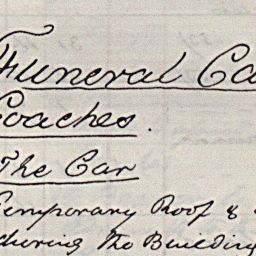 Funeral Ca
Coaches.
The Car
Temporary Roof &
during the Building